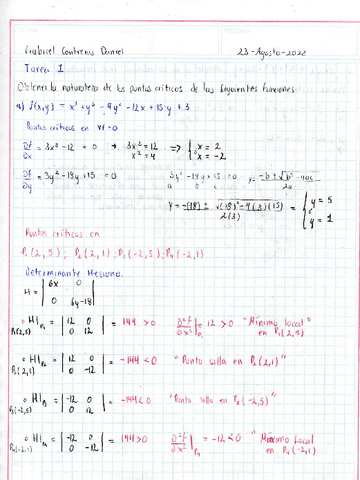 Gabriel Contreras Daniel 23-Agosto-2022
Tarea 1
Obtener la naturaleza de los puntos críticos de las siguientes funciones
a) f(x,y) = x³ + y³ - 9y² - 12x + 15y + 3
Puntos críticos en ∇f = 0
∂f/∂x = 3x² - 12 = 0 → 3x² = 12 x² = 4 => { x = 2 x = -2
∂f/∂y = 3y² - 18y + 15 = 0 3y² - 18y + 15 = 0 y = -b ± √b² - 4ac / 2a
a b c
y = -(-18) ± √(18)² - 4(3)(15) / 2(3) = { y = 5 y = 1
Puntos críticos en
P₁(2,5); P₂(2,1); P₃(-2,5); P₄(-2,1)
Determinante Hessiano.
H = | 6x 0 0 6y-18 |
H|P₁ = | 12 0 0 12 | = 144 > 0 ∂²f/∂x²|P₁ = 12 > 0 "Mínimo local" en P₁(2,5)
P₁(2,5)
H|P₂ = | 12 0 0 -12 | = -144 < 0 "Punto silla en P₂(2,1)"
P₂(2,1)
H|P₃ = | -12 0 0 12 | = -144 < 0 "Punto silla en P₃(-2,5)"
P₃(-2,5)
H|P₄ = | -12 0 0 -12 | = 144 > 0 ∂²f/∂x²|P₄ = -12 < 0 "Máximo Local en P₄(-2,1)
P₄(-2,1)